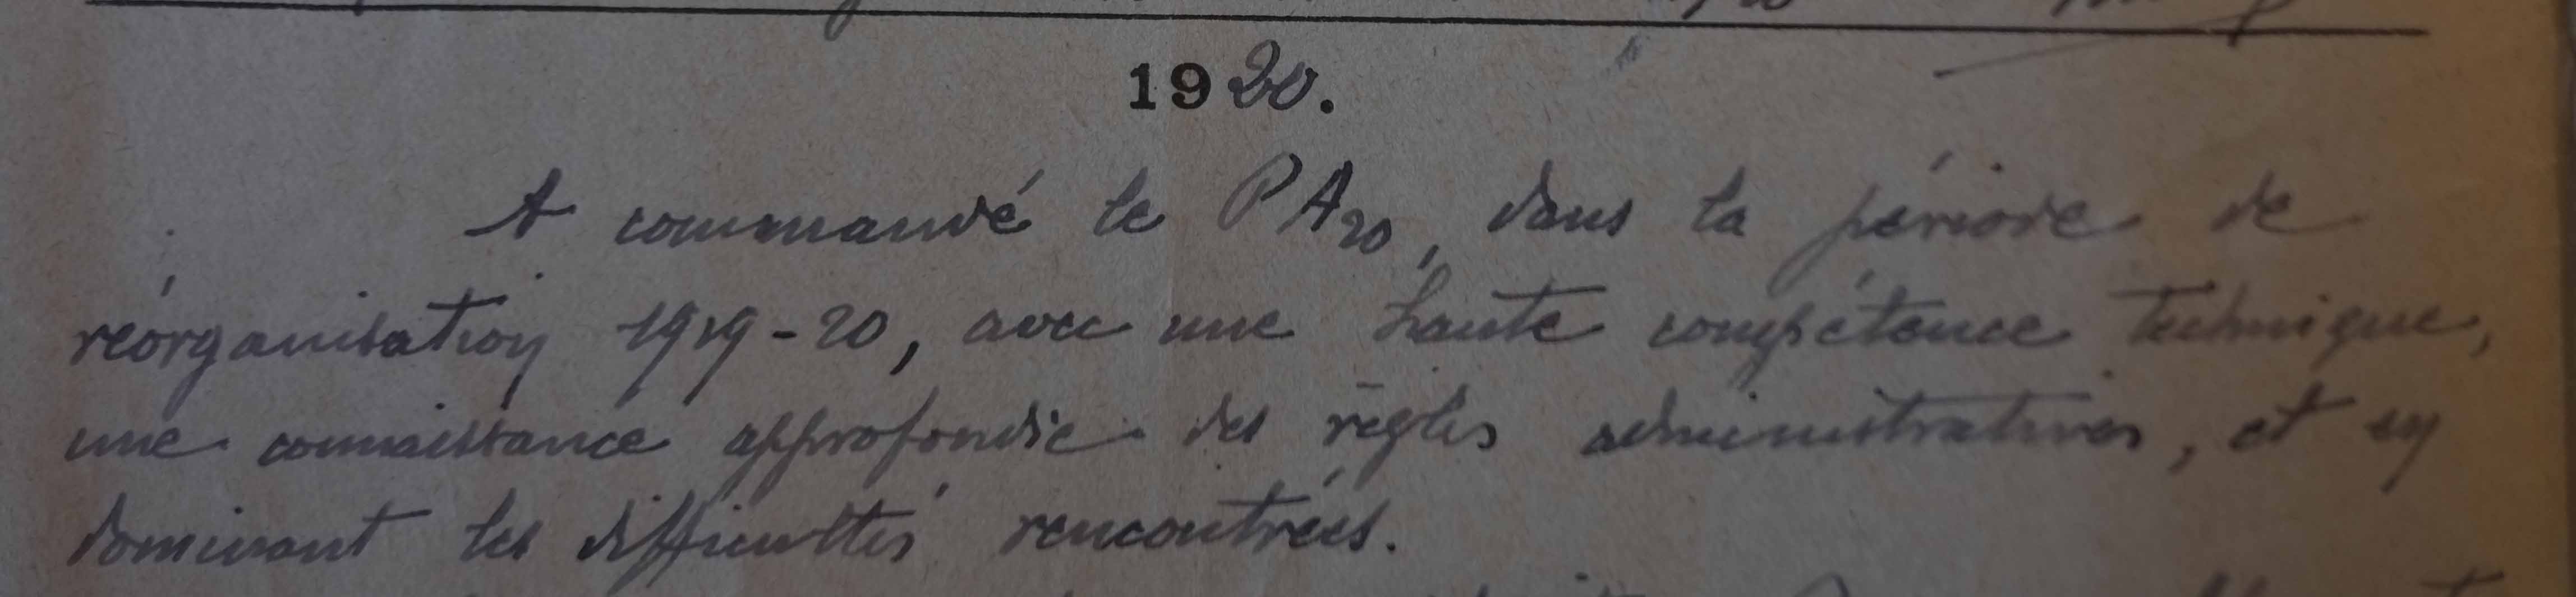 1920.
A commandé le PA20, dans la période de
réorganisation 1919-20, avec une haute compétence technique,
une connaissance approfondie des règles administratives, et en
dominant les difficultés rencontrées.